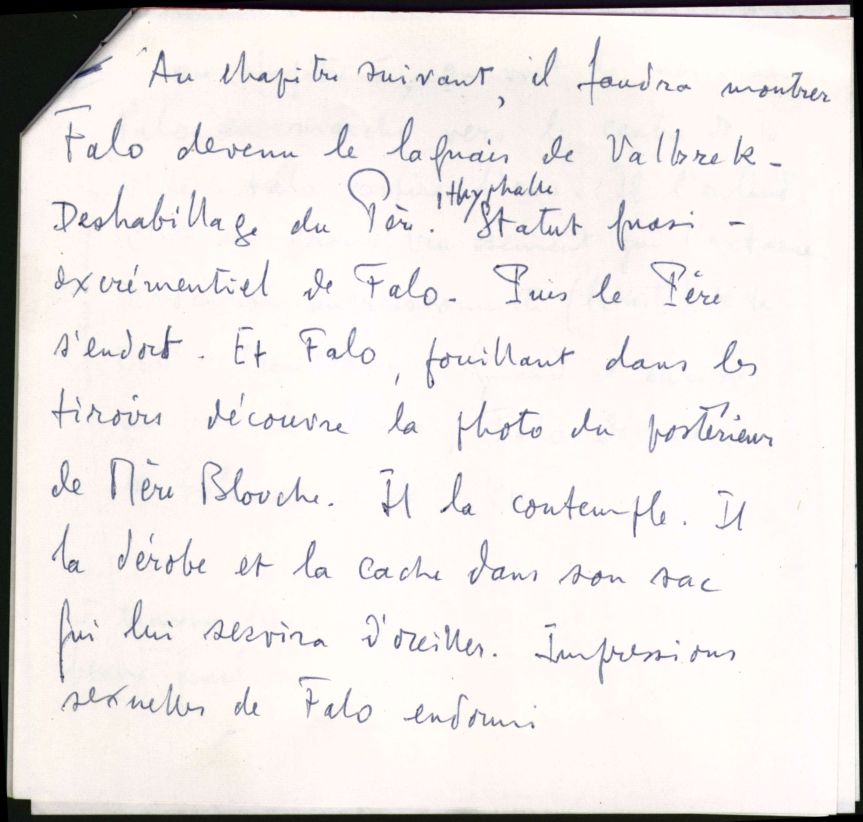 Au chapitre suivant, il faudra montrer
Falo devenu le laquais de Valbrek -
ithyphalle
Deshabillage du Père. Statut quasi -
excrémentiel de Falo. Puis le Père
s'endort. Et Falo, fouillant dans les
tiroirs découvre la photo du postérieur
de Mère Blouche. Il la contemple. Il
la dérobe et la cache dans son sac
qui lui servira d'oreiller. Impressions
sexuelles de Falo endormi